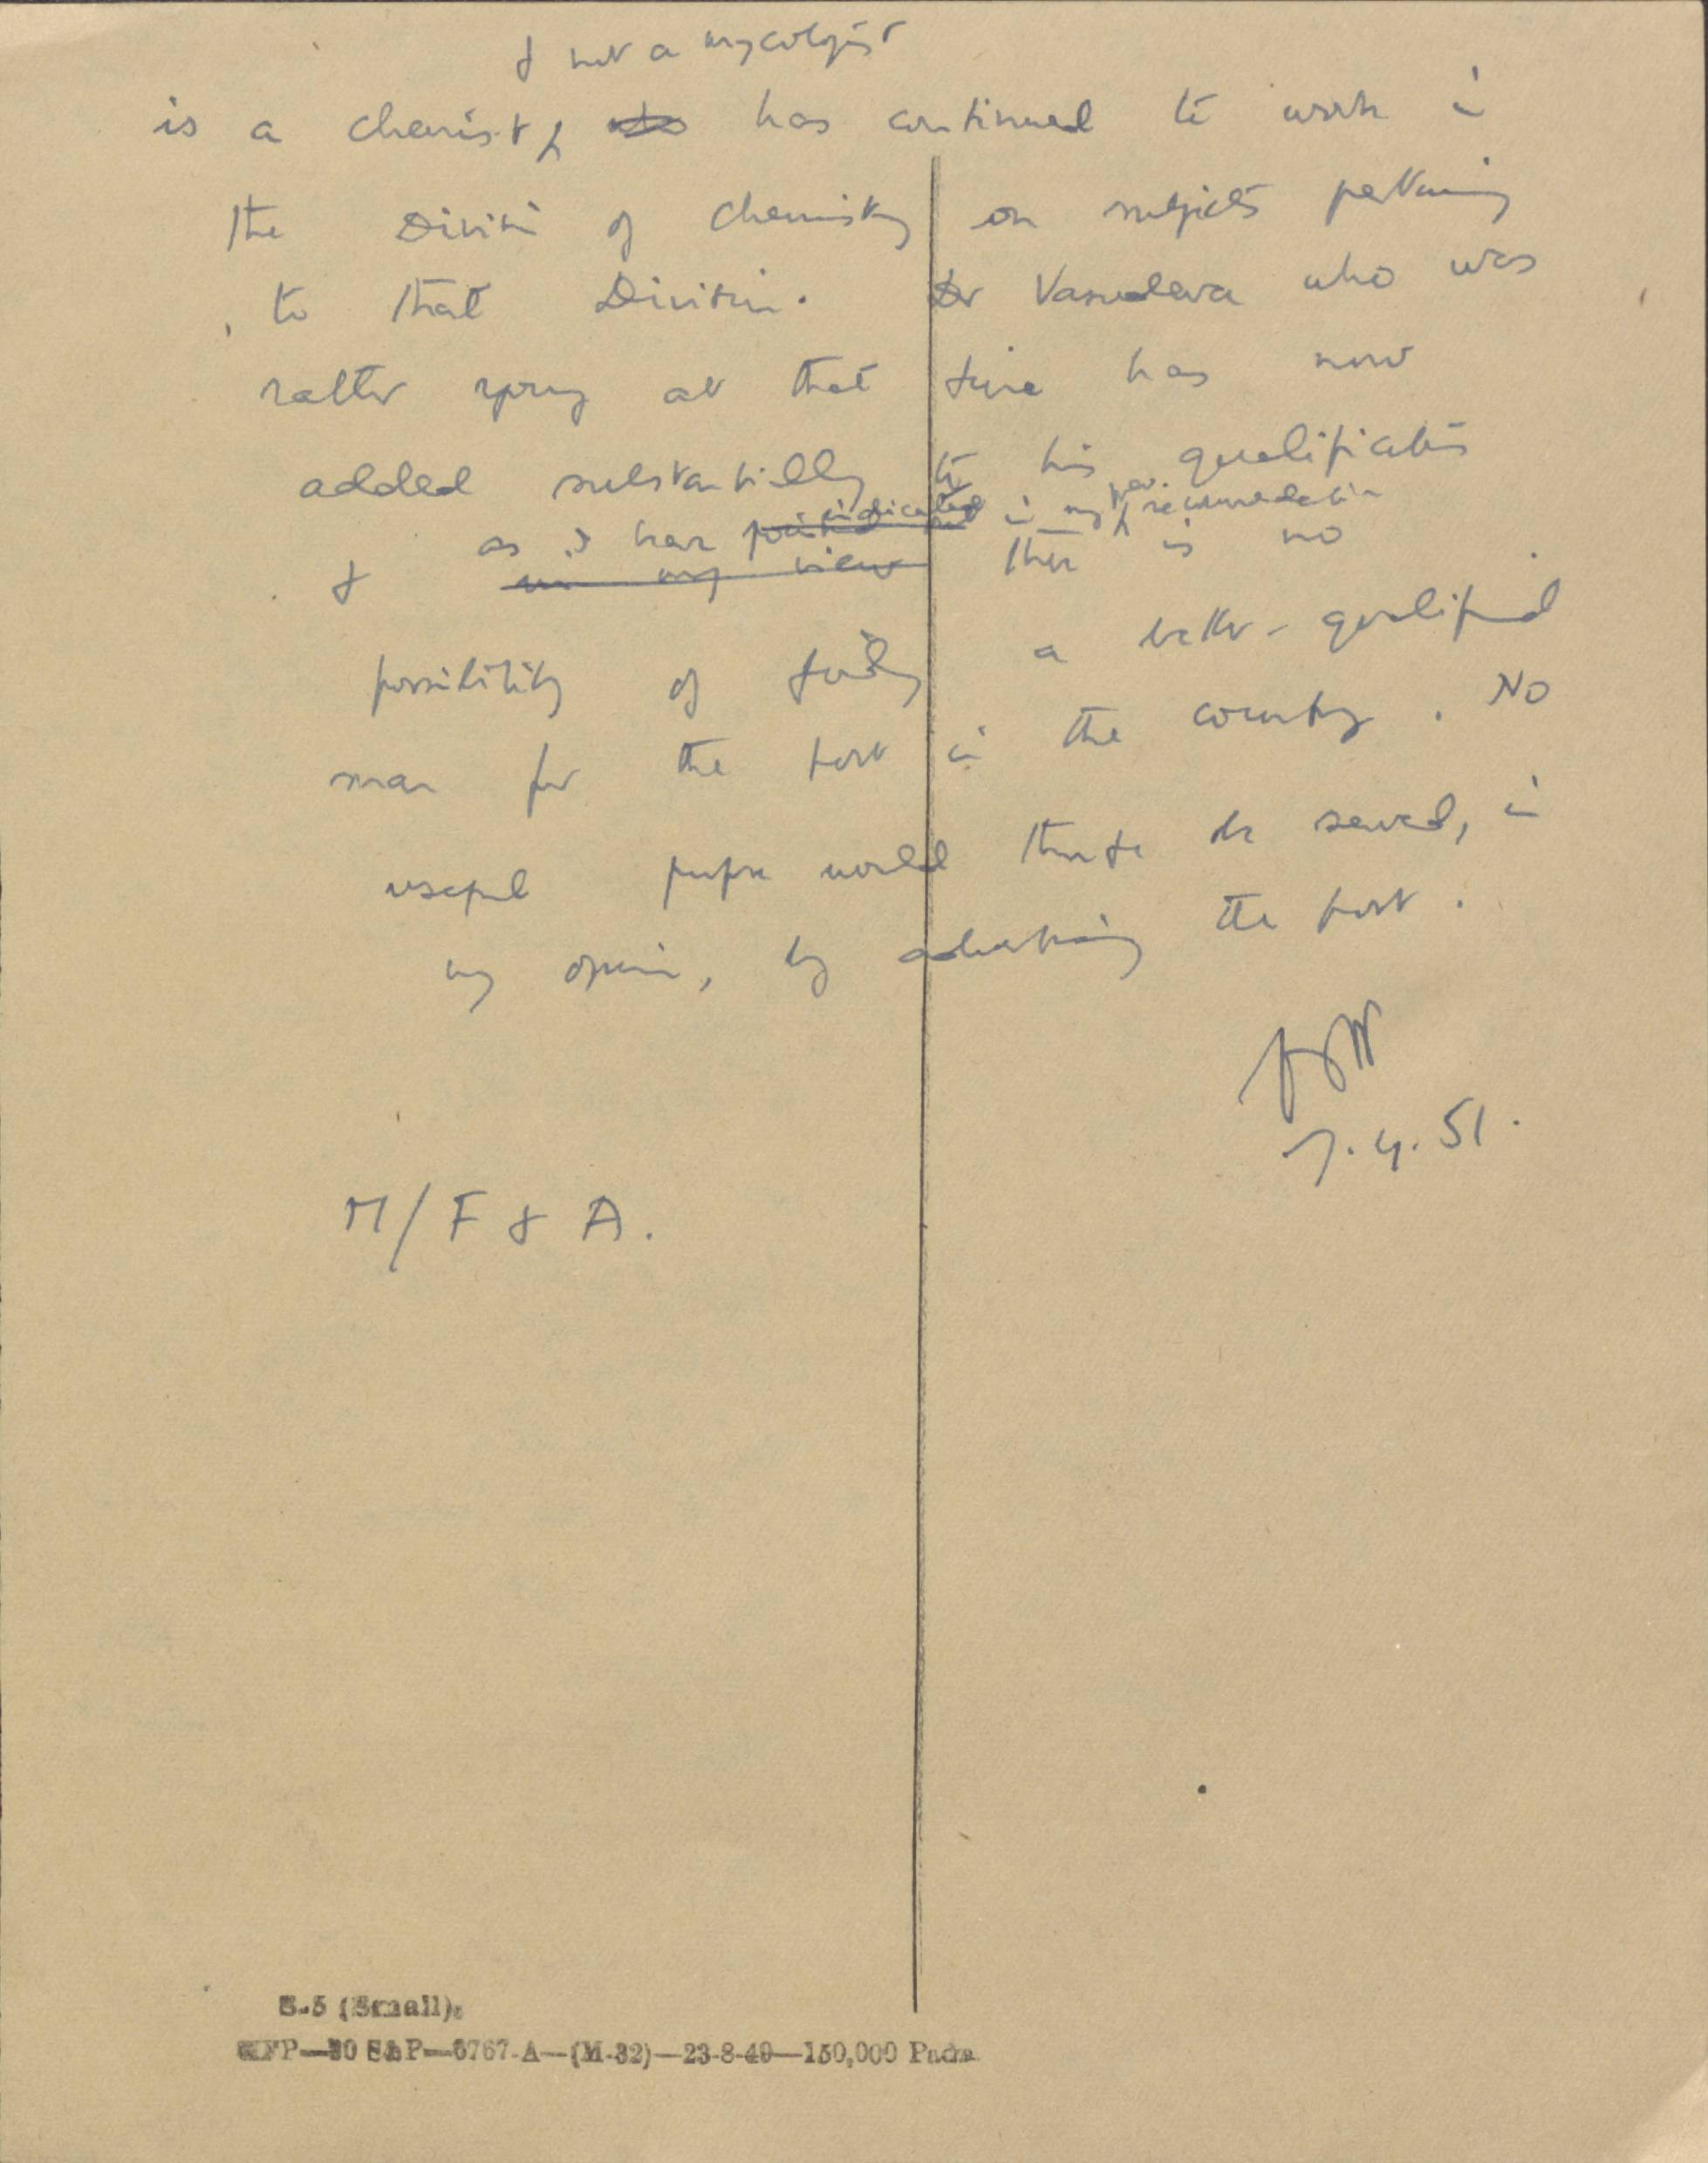 & not a mycologist
is a chemist, has continued to work in
the Division of Chemistry on subjects pertaining
to that Division. Dr Vasudeva who was
rather young at that time has now
added substantially to his qualifications
as I have indicated in my prev. recommendation
& in my view there is no
possibility of finding a better-qualified
man for the post in the country. No
useful purpose would therefore be served, in
my opinion, by advertising the post.
7.4.51.
M/F & A.
S.5 (Small).
P—6767-A—(M-32)—23-8-49—150,000 Pads